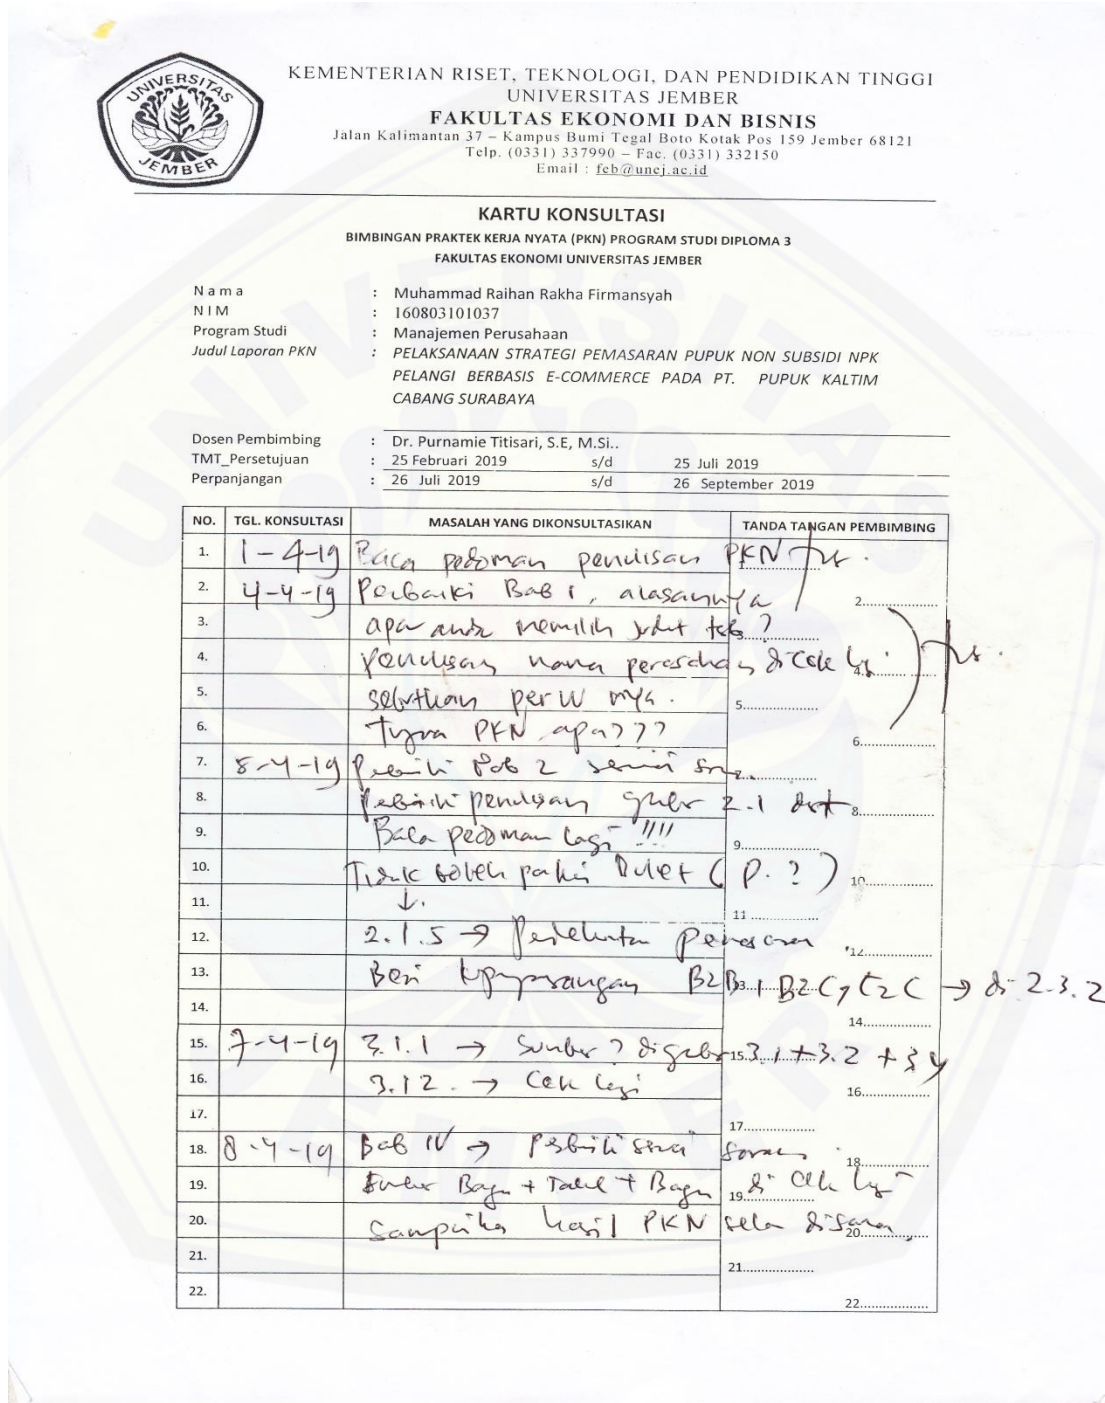 UNIVERSITAS
JEMBER
KEMENTERIAN RISET, TEKNOLOGI, DAN PENDIDIKAN TINGGI
UNIVERSITAS JEMBER
FAKULTAS EKONOMI DAN BISNIS
Jalan Kalimantan 37 – Kampus Bumi Tegal Boto Kotak Pos 159 Jember 68121
Telp. (0331) 337990 – Fac. (0331) 332150
Email : feb@unej.ac.id
KARTU KONSULTASI
BIMBINGAN PRAKTEK KERJA NYATA (PKN) PROGRAM STUDI DIPLOMA 3
FAKULTAS EKONOMI UNIVERSITAS JEMBER
N a m a : Muhammad Raihan Rakha Firmansyah
N I M : 160803101037
Program Studi : Manajemen Perusahaan
Judul Laporan PKN : PELAKSANAAN STRATEGI PEMASARAN PUPUK NON SUBSIDI NPK
PELANGI BERBASIS E-COMMERCE PADA PT. PUPUK KALTIM
CABANG SURABAYA
Dosen Pembimbing : Dr. Purnamie Titisari, S.E, M.Si..
TMT_Persetujuan : 25 Februari 2019 s/d 25 Juli 2019
Perpanjangan : 26 Juli 2019 s/d 26 September 2019
NO. TGL. KONSULTASI MASALAH YANG DIKONSULTASIKAN TANDA TANGAN PEMBIMBING
1. 1-4-19 Baca pedoman penulisan PKN
2. 4-4-19 Perbaiki Bab 1, alasannya 2..................
3. apa anda memilih judul tsb?
4. penulisan nama perusahaan di cek lagi 4..................
5. sebutkan per mya. 5..................
6. PKN apa??? 6..................
7. Bab 2
8. penulisan 2.1 8..................
9. Baca pedoman lagi !!!! 9..................
10. Tidak boleh pakai Bulet ( P. ? ) 10..................
11. ↓. 11..................
12. 2.1.5 → 12..................
13. Beri B2B, B2C, C2C → di 2.3.2
14. 14..................
15. 7-4-19 3.1.1 → Sumber? 15 3.1 + 3.2 + 3.4
16. 3.12. → Cek lagi 16..................
17. 17..................
18. 8-4-19 Bab IV → 18..................
19. Bagan + Tabel + Bagan 19 di cek lagi
20. hasil PKN 20..................
21. 21..................
22. 22..................